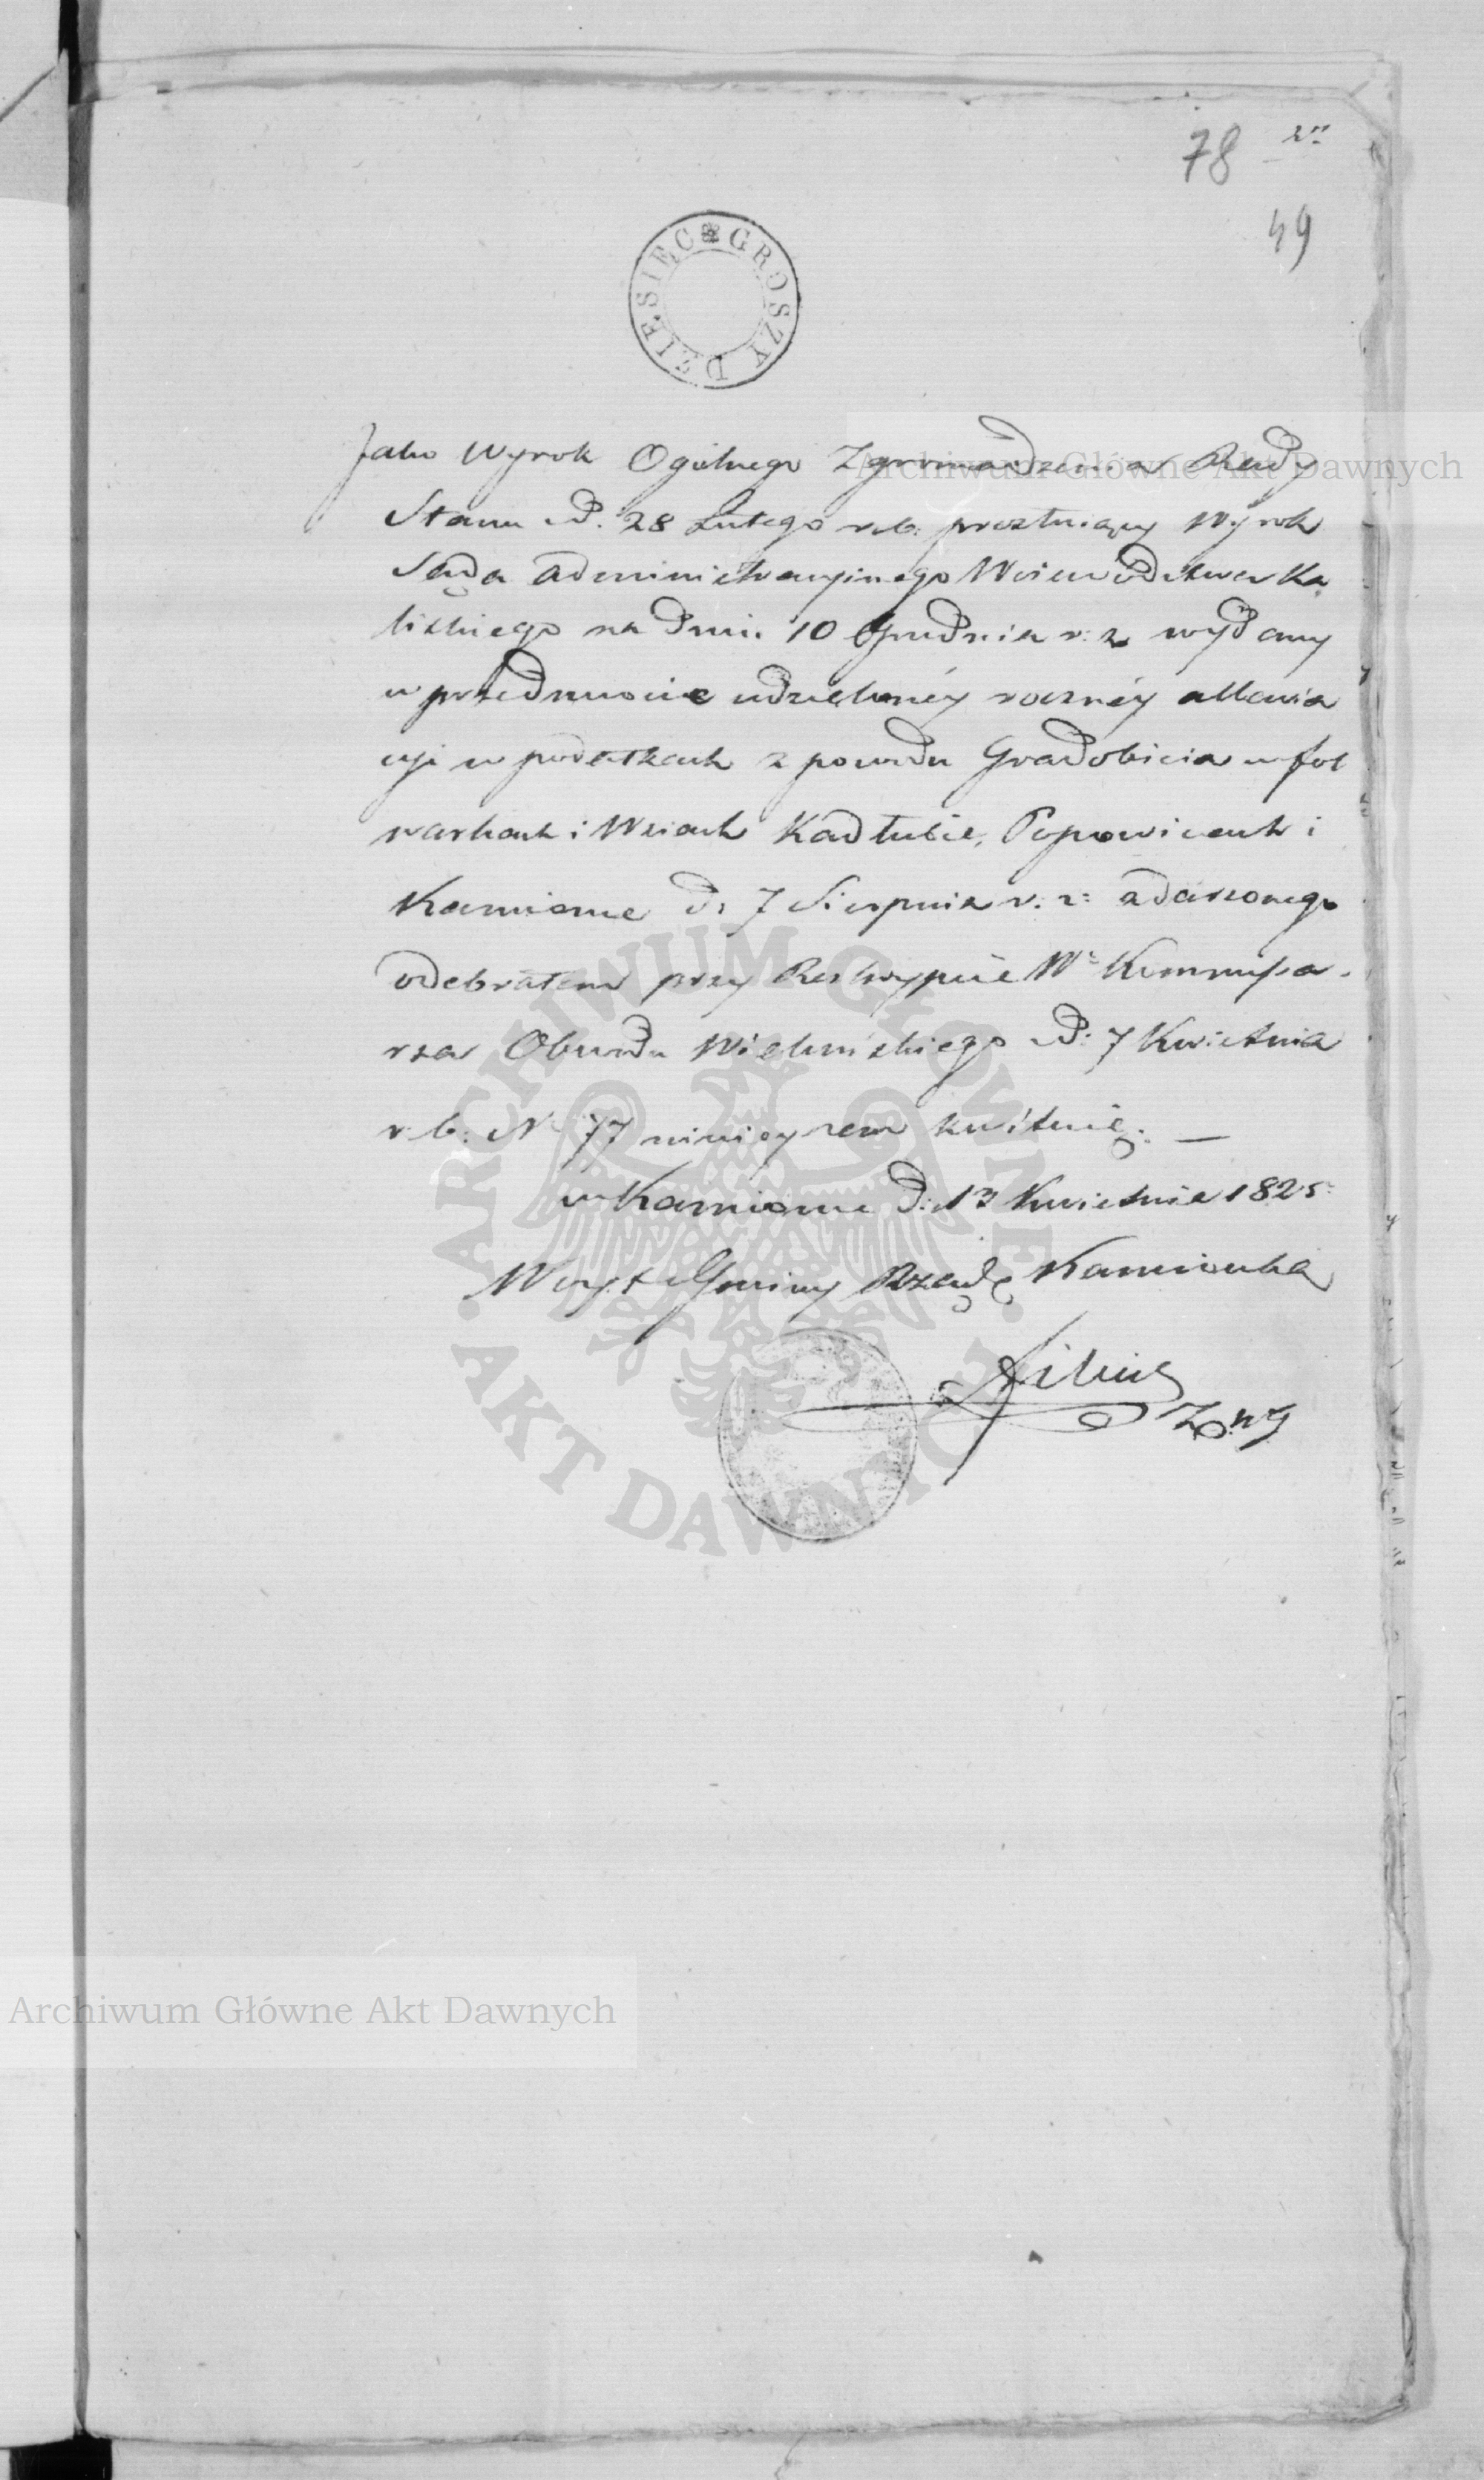 78
49
DZIESIĘC GROSZY
Jako Wyrok Ogólnego Zgromadzenia Rady
Stanu d. 28 Lutego r.b. Wyrok
Sądu Administracyinego Woiewodztwa Ka
liskiego na dniu 10 Grudnia r: z wydany
w przedmiocie udzieloney roczney allewia
cyi w podatkach z powodu Gradobicia w fol
warkach i Wsiach Kadłubie, Popowicach i
Kamionie d: 7 Sierpnia r: z: zdarzonego
odebrałem przy Reskrypcie Wº Kommissa
rza Obwodu Wieluńskiego d: 7 Kwietnia
r. b: N 77 ninieyszem kwituię. —
w Kamionie d: 13 Kwietnia 1825
Woyt Gminy Rządę Kamionka
Archiwum Główne Akt Dawnych
ARCHIWUM GŁÓWNE AKT DAWNYCH
Archiwum Główne Akt Dawnych